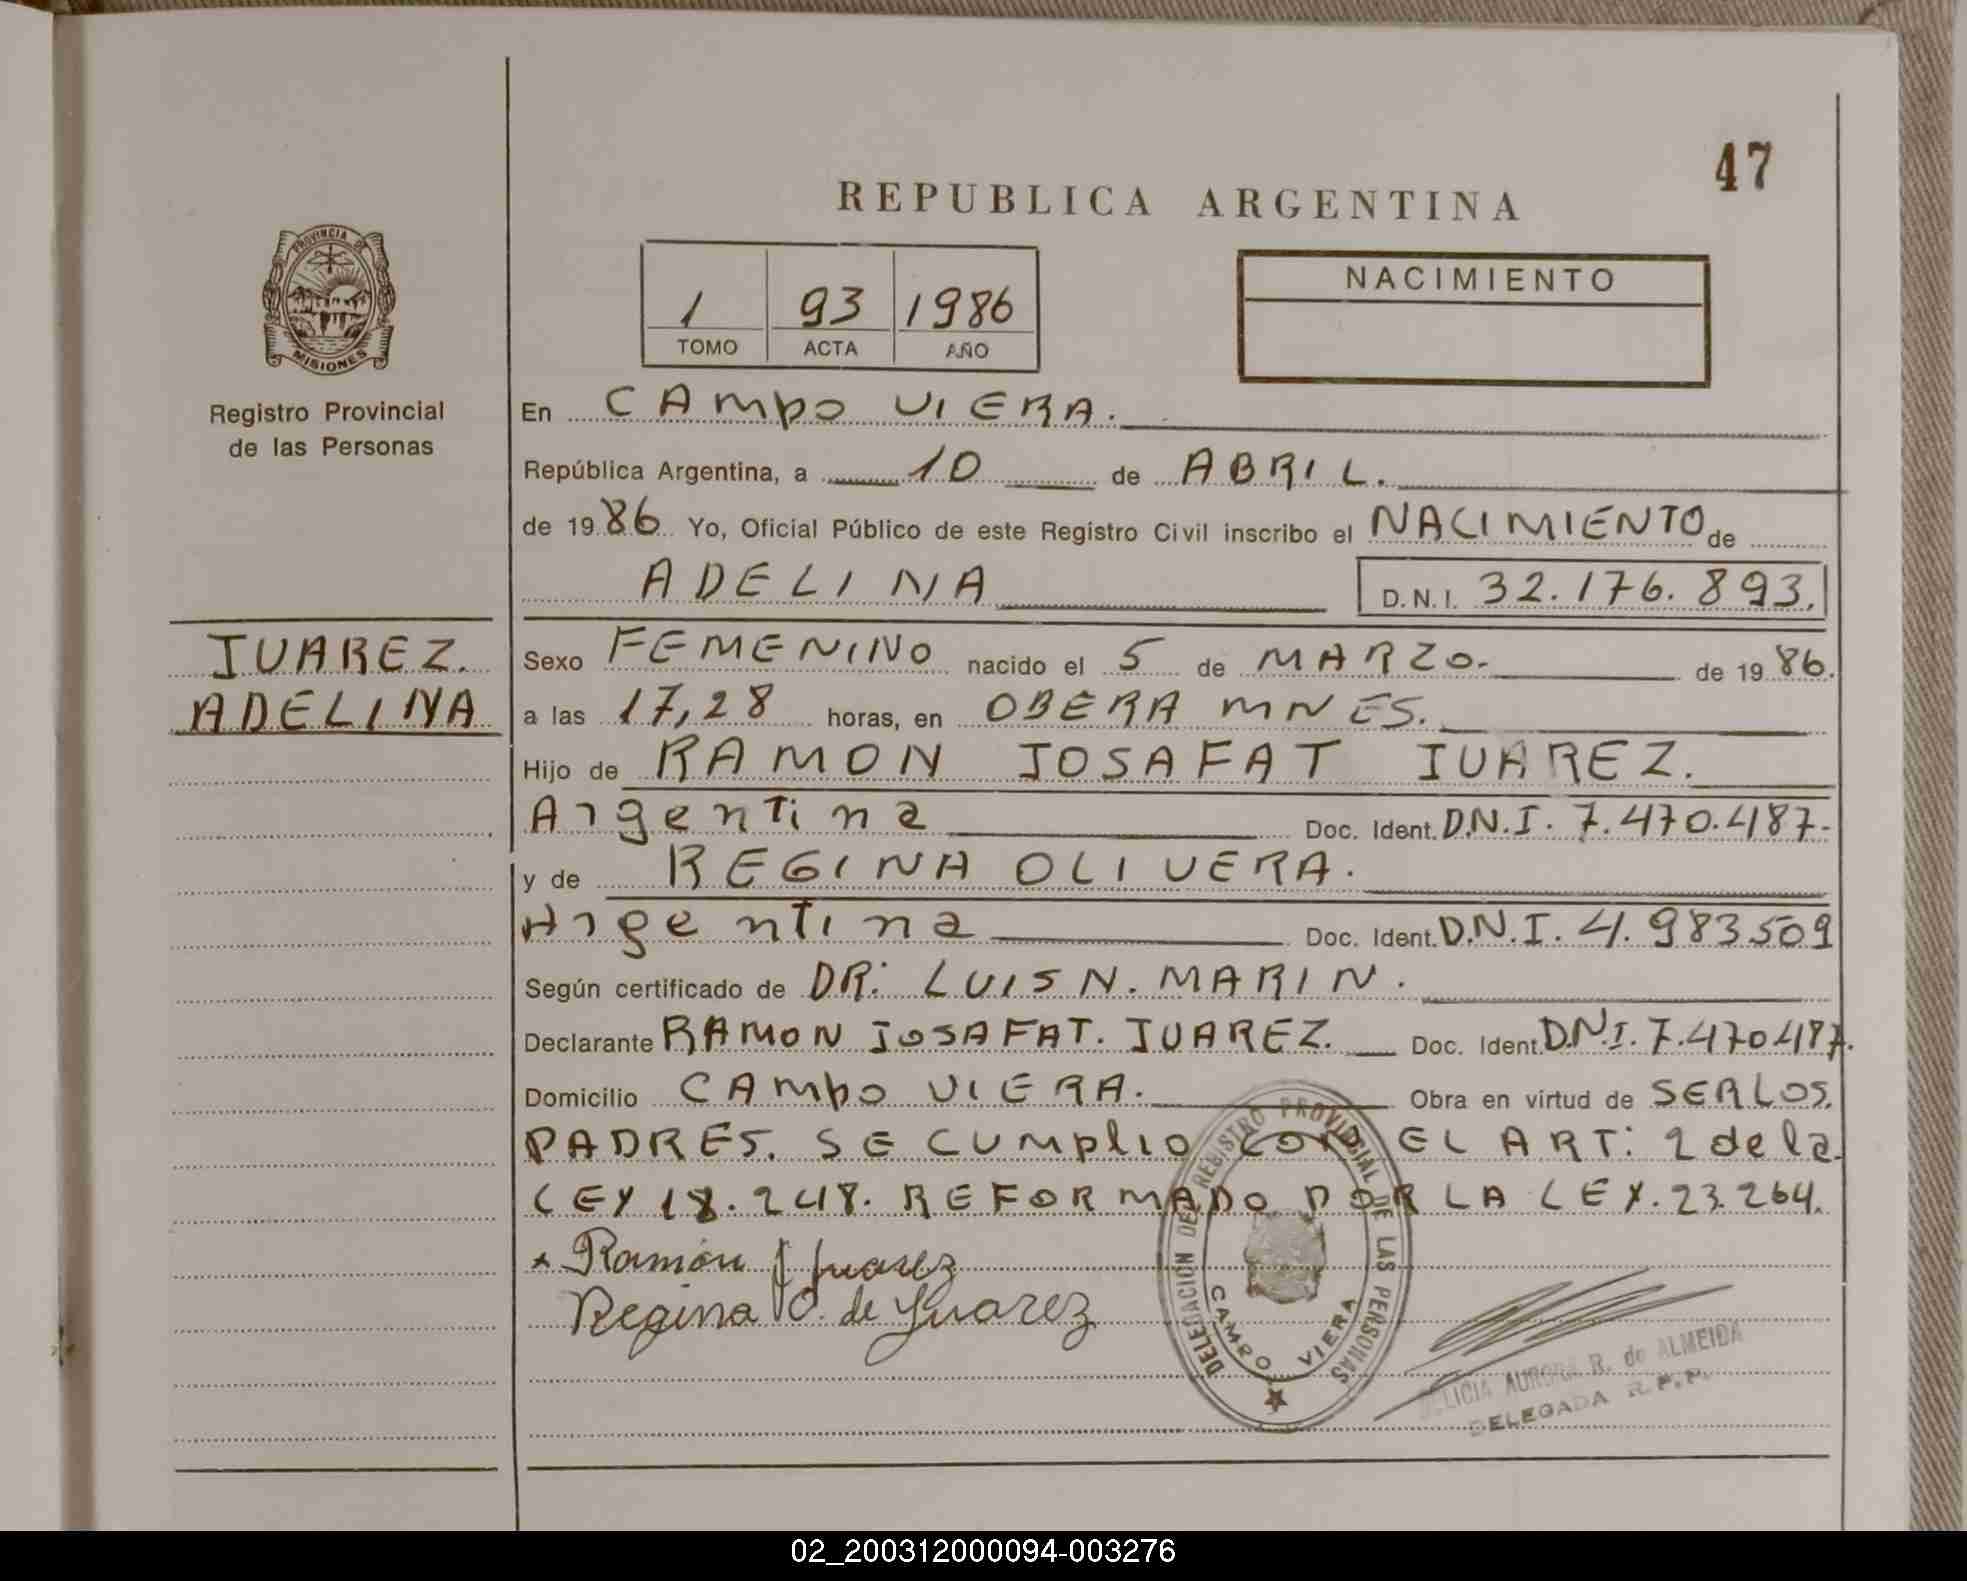 47
REPUBLICA ARGENTINA
PROVINCIA DE
MISIONES
Registro Provincial
de las Personas
1 93 1986
TOMO ACTA AÑO
NACIMIENTO
En CAMPO VIERA.
República Argentina, a 10 de ABRIL.
de 1986 Yo, Oficial Público de este Registro Civil inscribo el NACIMIENTO de
ADELINA D.N.I. 32.176.893.
JUAREZ.
ADELINA
Sexo FEMENINO nacido el 5 de MARZO. de 1986.
a las 17,28 horas, en OBERA MNES.
Hijo de RAMON JOSAFAT JUAREZ.
Argentina Doc. Ident. D.N.I. 7.470.487.
y de REGINA OLIVERA.
Argentina Doc. Ident. D.N.I. 4.983509
Según certificado de DR: LUIS N. MARIN.
Declarante RAMON JOSAFAT. JUAREZ. Doc. Ident. D.N.I. 7.470487.
Domicilio CAMPO VIERA. Obra en virtud de SER LOS.
PADRES. SE CUMPLIO CON EL ART: 2 de la
LEY 18.248. REFORMADO POR LA LEY. 23.264.
Ramón J Juarez
Regina O. de Juarez
DELEGACION DEL REGISTRO PROVINCIAL DE LAS PERSONAS
CAMPO VIERA
AURORA R. de ALMEIDA
DELEGADA R.P.P.
02_200312000094-003276